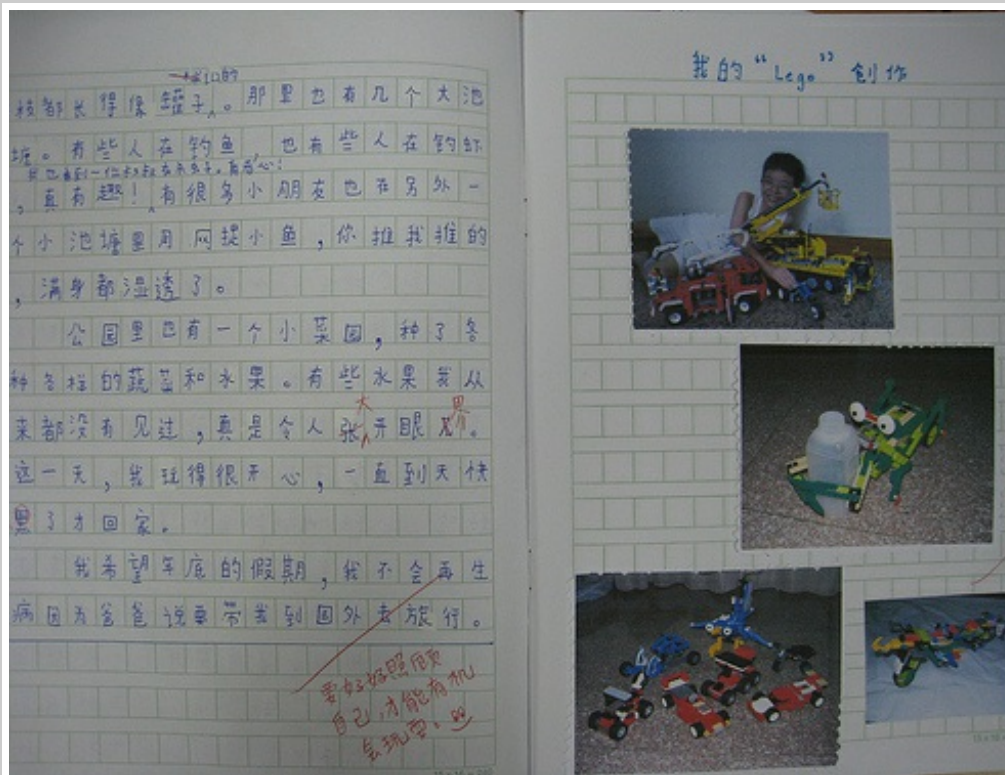 口的
枝都长得像罐子。那里也有几个大池
塘。有些人在钓鱼,也有些人在钓虾
,真有趣!有很多小朋友也在另外一
个小池塘里用网捉小鱼,你推我推的
,满身都湿透了。
公园里也有一个小菜园,种了各
种各样的蔬菜和水果。有些水果我从
大 界
来都没有见过,真是令人张开眼。
这一天,我玩得很开心,一直到天快
黑了才回家。
我希望年底的假期,我不会再生
病因为爸爸说要带我到国外去旅行。
要好好照顾
自己,才能有机
会玩耍!
我的“Lego”创作